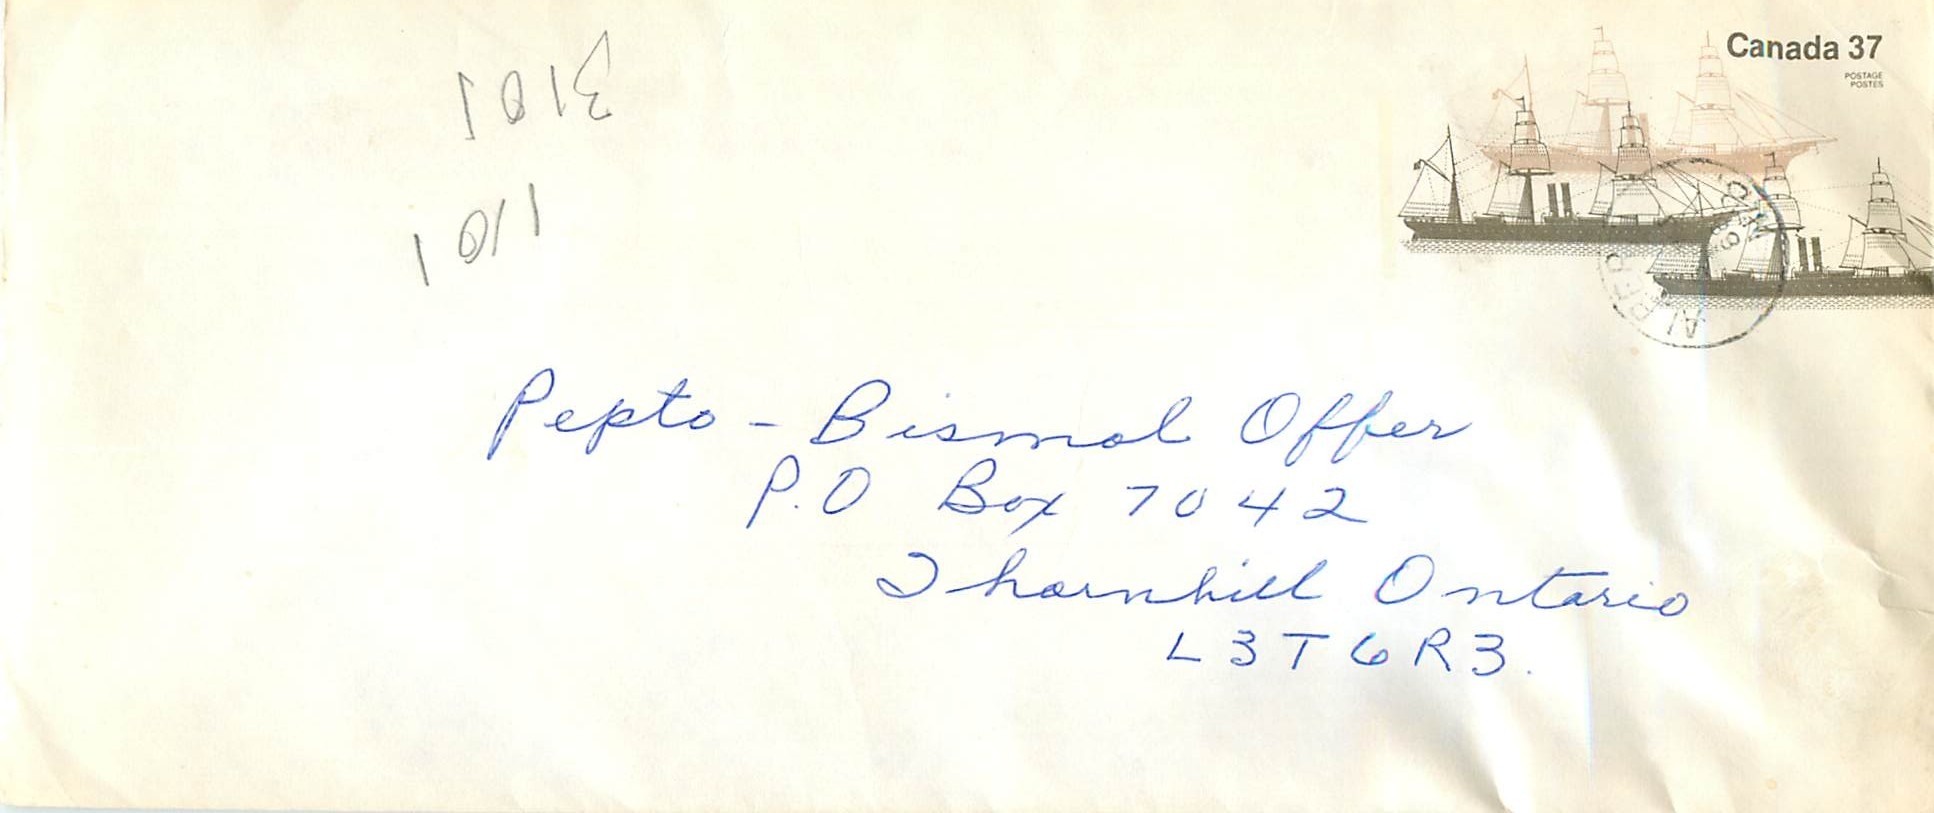 Canada 37
POSTAGE
POSTES
Pepto - Bismol Offer
P.O Box 7042
Thornhill Ontario
L3T6R3.